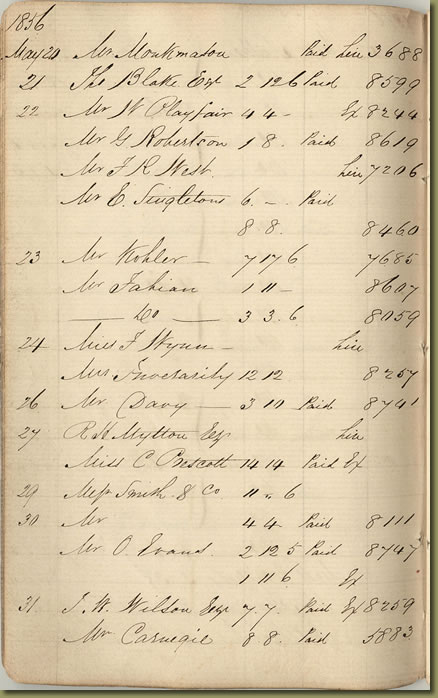 1856
May 20 Mr Monkmason Paid Lin 3688
21 Tho Blake Esqr 2 12 6 Paid 8599
22 Mr W Playfair 4 4 - Ex 8244
Mr G Robertson 1 8 . Paid 8619
Mr F R West. Lin 7206
Mr E. Singletons 6 . - . Paid
8 8 . 8460
23 Mr Kohler - 7 17 6 7685
Mr Fabian 1 11 - 8607
— Do — 3 3 . 6 8059
24 Miss F Wynn - Lin
Mrs 12 12 8257
26 Mr Davy — 3 10 Paid 8741
27 R H Mytton Esqr Lin
Miss C Prescott 14 14 Paid Ex
29 Messrs Smith & Co 11 " 6
30 Mr 4 4 Paid 8111
Mr O. Evans. 2 12 5 Paid 8747
1 11 6 Ex
31. J. W. Wilson Esqr 7 . 7 . Paid Ex 8259
Mr Carnegie 8 8 . Paid 5883